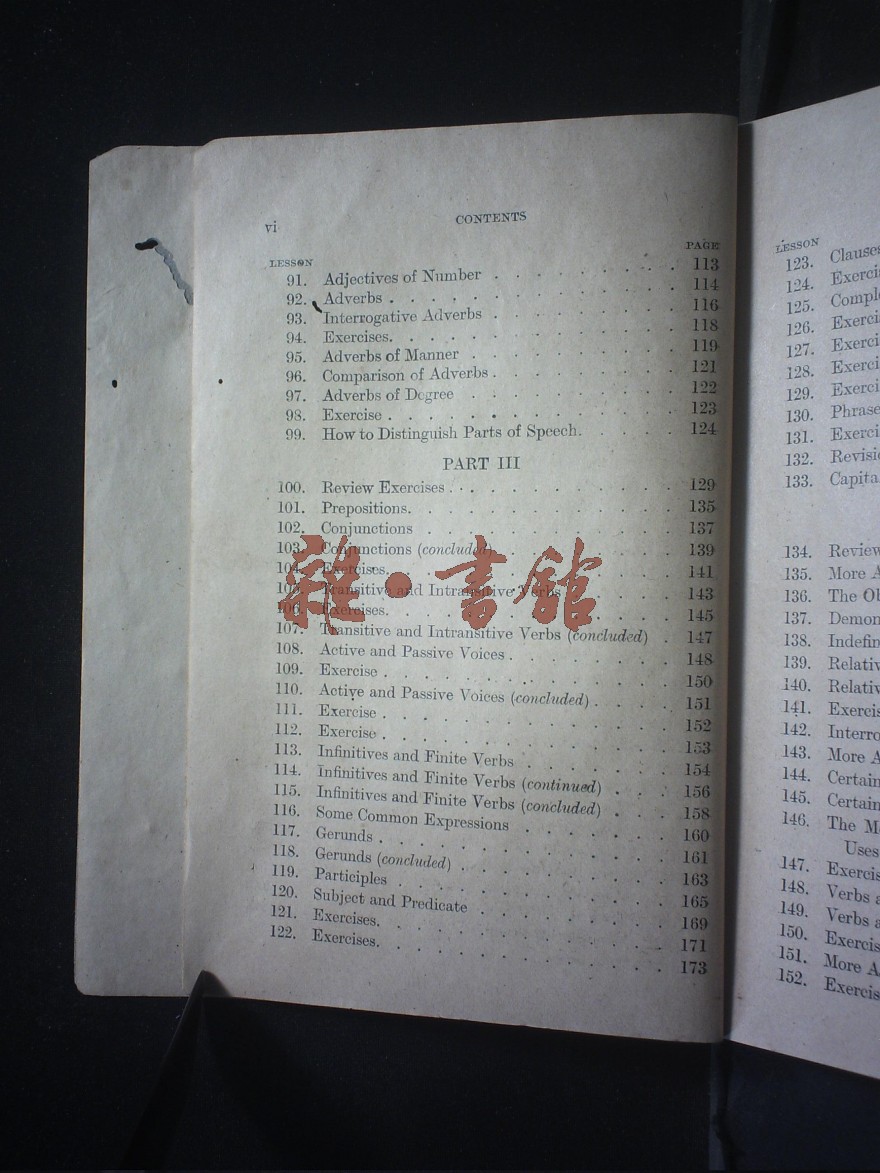 vi CONTENTS
LESSON PAGE
91. Adjectives of Number . . . . . . . . . 113
92. Adverbs . . . . . . . . . . . . 114
93. Interrogative Adverbs . . . . . . . . . 116
94. Exercises. . . . . . . . . . . . 118
95. Adverbs of Manner . . . . . . . . . 119
96. Comparison of Adverbs . . . . . . . . . 121
97. Adverbs of Degree . . . . . . . . . 122
98. Exercise . . . . . . . . . . . . 123
99. How to Distinguish Parts of Speech. . . . . 124
PART III
100. Review Exercises . . . . . . . . . . 129
101. Prepositions. . . . . . . . . . . 135
102. Conjunctions . . . . . . . . . . 137
103. Conjunctions (concluded) . . . . . . . 139
104. Exercises. . . . . . . . . . . . 141
105. Transitive and Intransitive Verbs . . . . . 143
106. Exercises. . . . . . . . . . . . 145
107. Transitive and Intransitive Verbs (concluded) . 147
108. Active and Passive Voices . . . . . . . 148
109. Exercise . . . . . . . . . . . . 150
110. Active and Passive Voices (concluded) . . . . 151
111. Exercise . . . . . . . . . . . . 152
112. Exercise . . . . . . . . . . . . 153
113. Infinitives and Finite Verbs . . . . . . . 154
114. Infinitives and Finite Verbs (continued) . . . 156
115. Infinitives and Finite Verbs (concluded) . . . 158
116. Some Common Expressions . . . . . . . 160
117. Gerunds . . . . . . . . . . . . 161
118. Gerunds (concluded) . . . . . . . . . 163
119. Participles . . . . . . . . . . . 165
120. Subject and Predicate . . . . . . . . 169
121. Exercises. . . . . . . . . . . . 171
122. Exercises. . . . . . . . . . . . 173
雜·書館
LESSON
123. Clauses
124. Exerci
125. Compl
126. Exerci
127. Exerci
128. Exerci
129. Exerci
130. Phrase
131. Exerci
132. Revisi
133. Capita
134. Review
135. More A
136. The Ob
137. Demon
138. Indefin
139. Relativ
140. Relativ
141. Exercis
142. Interro
143. More A
144. Certain
145. Certain
146. The M
Uses
147. Exercis
148. Verbs a
149. Verbs a
150. Exercis
151. More A
152. Exercis